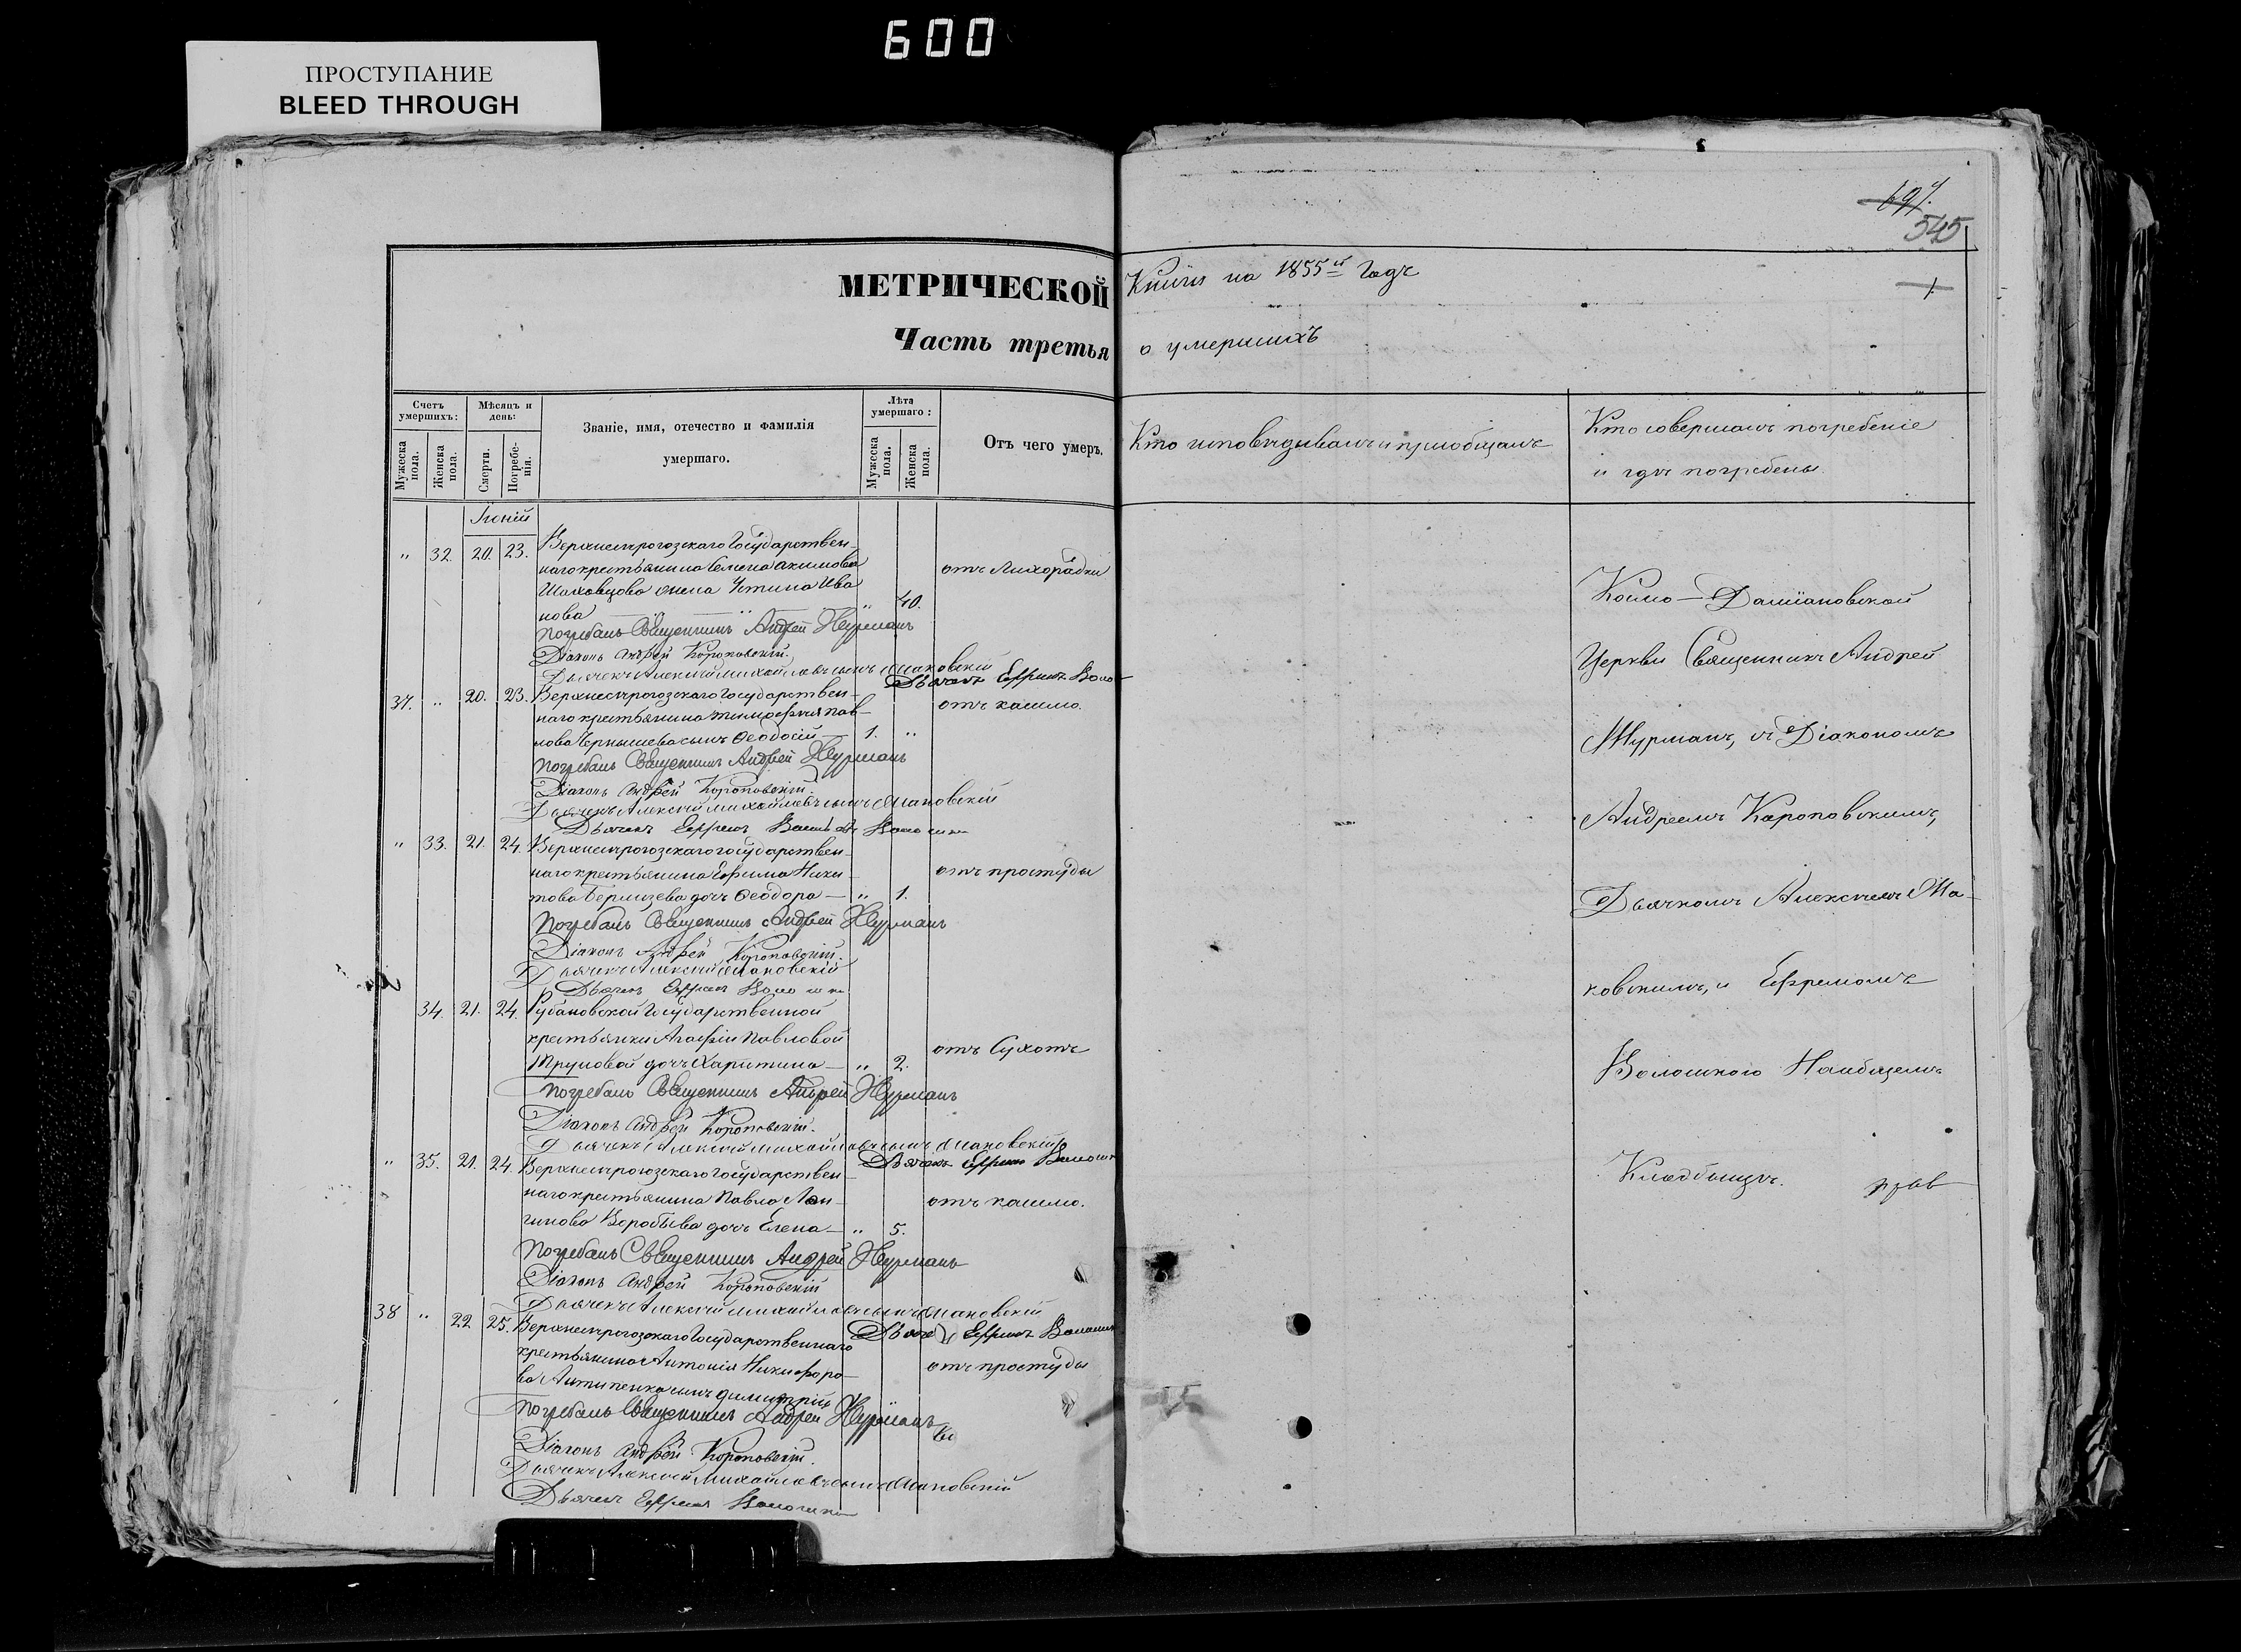 600
ПРОСТУПАНИЕ
BLEED THROUGH
697.
545
МЕТРИЧЕСКОЙ Книги на 1855й Годъ
Часть третья о умершихъ
Счетъ умершихъ:
Мужеска пола.
Женска пола.
Мѣсяцъ и день:
Смерти.
Погребенія.
Званіе, имя, отечество и фамилія
умершаго.
Лѣта умершаго:
Мужеска пола.
Женска пола.
Отъ чего умеръ.
Кто исповѣдывалъ и пріобщалъ
Кто совершалъ погребеніе
и гдѣ погребены.
Іюній
" 32. 20. 23. Верхнерогозскаго Государствен-
наго крестьянина Семена Акимова отъ лихорадки
Шаховцова жена Устина Ива
нова " 40.
Погребалъ Священникъ Андрей Журманъ
Діаконъ Андрей Короповскій.
Дьячекъ Алексій Михайловъ сынъ Маковскій
Дьячекъ Ефремъ Воло-
37. " 20. 23. Верхнерогозскаго Государствен-
наго крестьянина Тимофея Пав- отъ кашлю.
лова Чернышева сынъ Феодосій 1. "
Погребалъ Священникъ Андрей Журманъ
Діаконъ Андрей Короповскій.
Дьячекъ Алексій Михайловъ сынъ Маковскій
Дьячекъ Ефремъ Волошин
" 33. 21. 24. Верхнерогозскаго государствен-
наго крестьянина Ефима Ники- отъ простуды
това дочь Феодора " 1.
Погребалъ Священникъ Андрей Журманъ
Діаконъ Андрей Короповскій.
Дьячекъ Алексій Маковскій
Дьячекъ Ефремъ Волошин
34. 21. 24. Рубановской Государственной
крестьянки Агафіи Павловой отъ Сухотъ
Труновой дочь Харитина " 2.
Погребалъ Священникъ Андрей Журманъ
Діаконъ Андрей Короповскій.
Дьячекъ Алексій Михайловъ сынъ Маковскій
Дьячекъ Ефремъ Волошин
" 35. 21. 24. Верхнерогозскаго Государствен-
наго крестьянина Павла Лон- отъ кашлю.
гинова Воробьева дочь Елена " 5.
Погребалъ Священникъ Андрей Журманъ
Діаконъ Андрей Короповскій
Дьячекъ Алексій Михайловъ сынъ Маковскій
Ефремъ Волошин
38 " 22. 25. Верхнерогозскаго Государственнаго
крестьянина Антонія Никифоро- отъ простуды
ва Антипенка сынъ Димитрій
Погребалъ Священникъ Андрей Журманъ
Діаконъ Андрей Короповскій.
Дьячекъ Алексій Михайловъ сынъ Маковскій
Дьячекъ Ефремъ Волошин
Космо-Даміановской
Церкви Священникъ Андрей
Журманъ, съ Діакономъ
Андреемъ Короповскимъ,
Дьячкомъ Алексѣемъ Ма-
ковскимъ, и Ефремомъ
Волошиномъ На общемъ
Кладбищѣ.